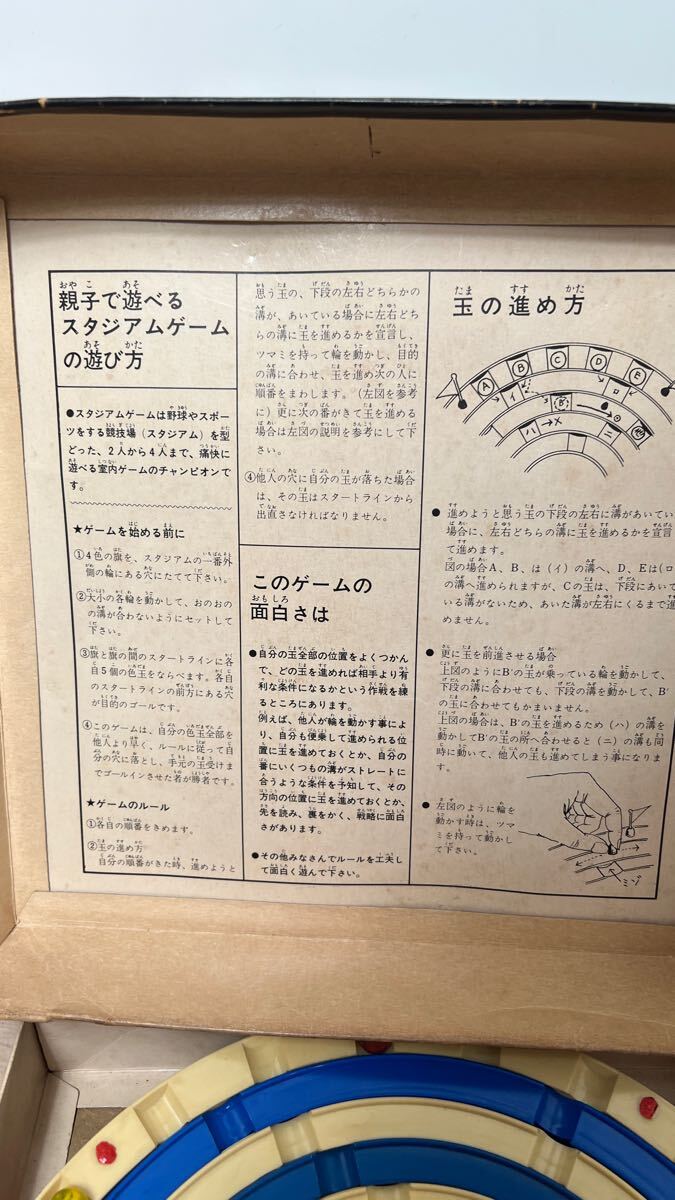 親子で遊べる
スタジアムゲーム
の遊び方
●スタジアムゲームは野球やスポー
ツをする競技場（スタジアム）を型
どった、2人から4人まで、痛快に
遊べる室内ゲームのチャンピオンで
す。
★ゲームを始める前に
①4色の旗を、スタジアムの一番外
側の輪にある穴にたてて下さい。
②大小の各輪を動かして、おのおの
の溝が合わないようにセットして
下さい。
③旗と旗の間のスタートラインに各
自5個の色玉をならべます。各自
のスタートラインの前方にある穴
が目的のゴールです。
④このゲームは、自分の色玉全部を
他人より早く、ルールに従って自
分の穴に落とし、手元の玉受けま
でゴールインさせた者が勝者です。
★ゲームのルール
①各自の順番をきめます。
②玉の進め方
自分の順番がきた時、進めようと
思う玉の、下段の左右どちらかの
溝が、あいている場合に左右どち
らの溝に玉を進めるかを宣言し、
ツマミを持って輪を動かし、目的
の溝に合わせ、玉を進め次の人に
順番をまわします。（左図を参考
に）更に次の番がきて玉を進める
場合は左図の説明を参考にして下
さい。
④他人の穴に自分の玉が落ちた場合
は、その玉はスタートラインから
出直さなければなりません。
このゲームの
面白さは
●自分の玉全部の位置をよくつかん
で、どの玉を進めれば相手より有
利な条件になるかという作戦を練
るところにあります。
例えば、他人が輪を動かす事によ
り、自分も便乗して進められる位
置に玉を進めておくとか、自分の
番にいくつもの溝がストレートに
合うような条件を予知して、その
方向の位置に玉を進めておくとか、
先を読み、裏をかく、戦略に面白
さがあります。
●その他みなさんでルールを工夫し
て面白く遊んで下さい。
玉の進め方
A B C D E
イ ロ
B'
ハ →X ニ
●進めようと思う玉の下段の左右に溝があいてい
場合に、左右どちらの溝に玉を進めるかを宣言
て進めます。
図の場合A、B、は（イ）の溝へ、D、Eは（ロ
の溝へ進められますが、Cの玉は、下段にあいて
いる溝がないため、あいた溝が左右にくるまで進
めません。
●更に玉を前進させる場合
上図のようにB'の玉が乗っている輪を動かして、
下段の溝に合わせても、下段の溝を動かして、B'
の玉に合わせてもかまいません。
上図の場合は、B'の玉を進めるため（ハ）の溝を
動かしてB'の玉の所へ合わせると（ニ）の溝も同
時に動いて、他人の玉も進めてしまう事になりま
す。
●左図のように輪を
動かす時は、ツマ
ミを持って動かし
て下さい。
ミゾ